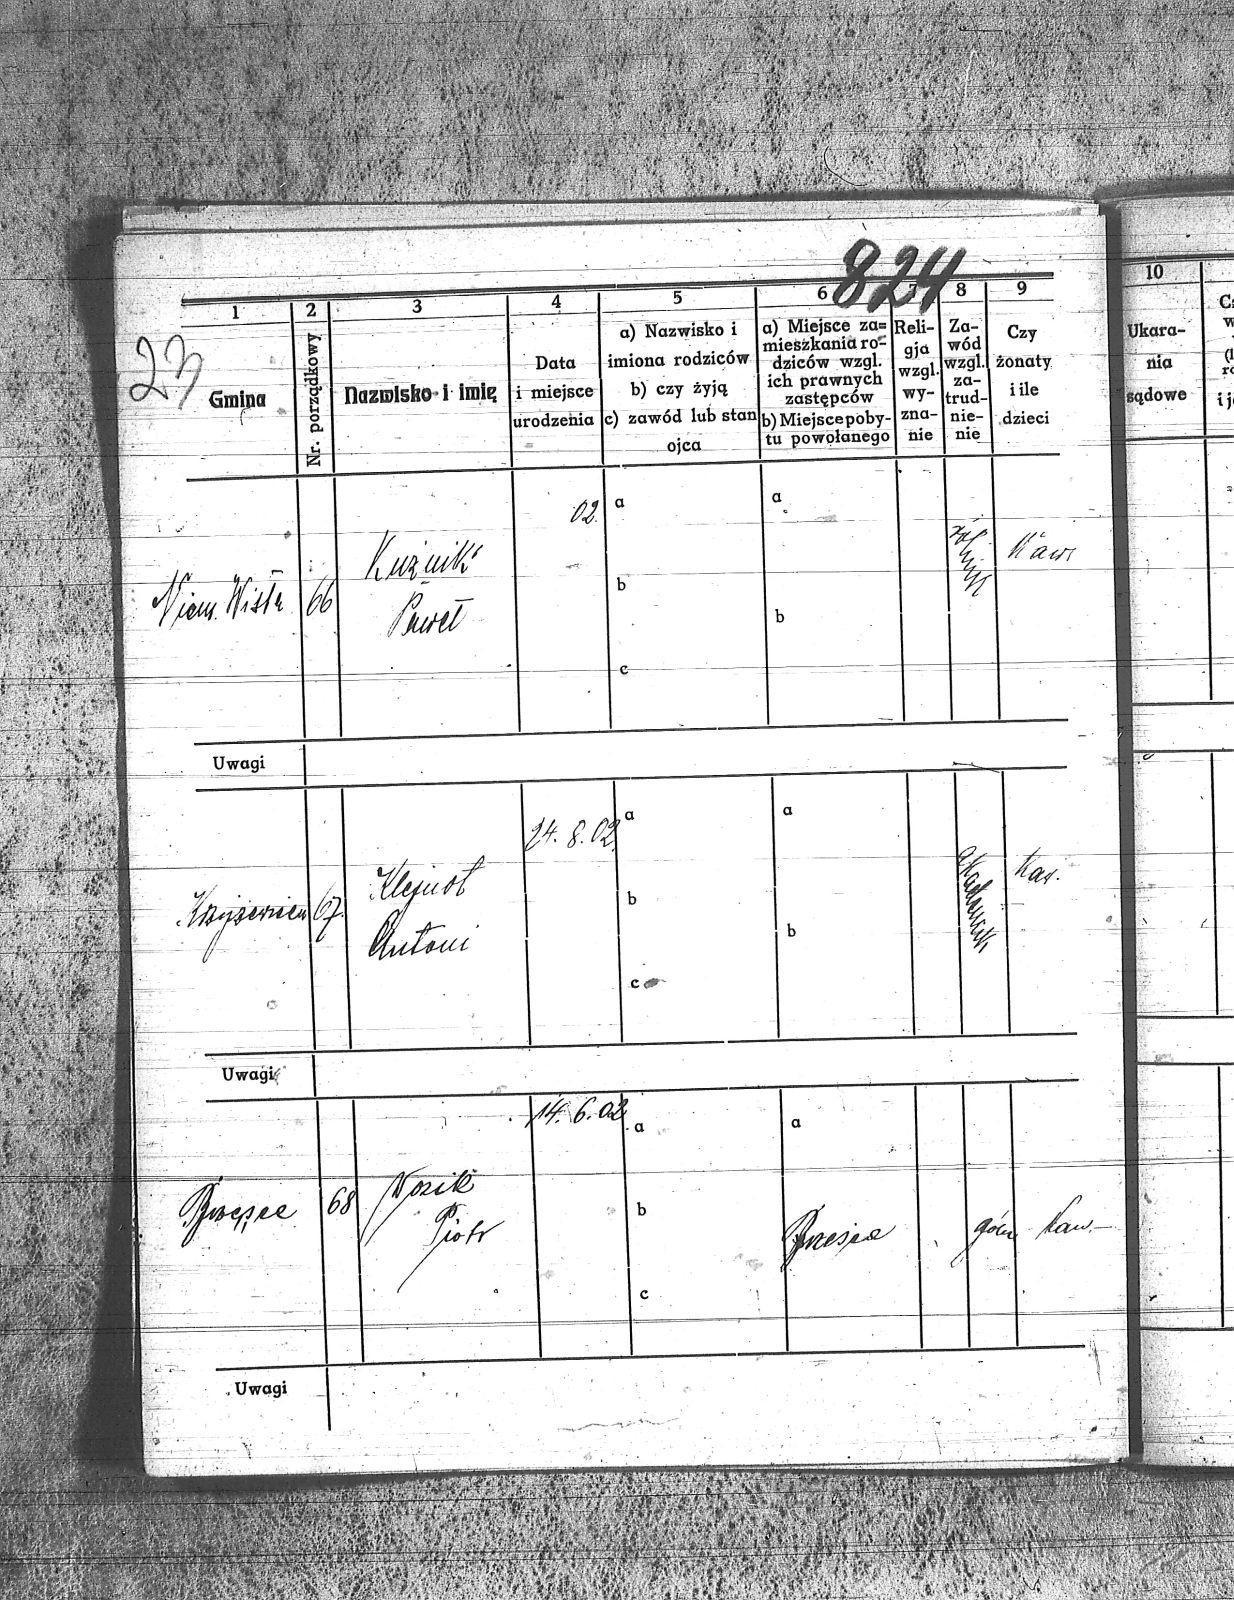 824
23
1 2 3 4 5 6 7 8 9 10
Gmina
Nr. porządkowy
Nazwisko i imię
Data
i miejsce
urodzenia
a) Nazwisko i
imiona rodziców
b) czy żyją
c) zawód lub stan
ojca
a) Miejsce za=
mieszkania ro=
dziców wzgl.
ich prawnych
zastępców
b) Miejsce poby-
tu powołanego
Reli-
gja
wzgl.
wy-
zna-
nie
Za-
wód
wzgl.
za-
trud-
nie-
nie
Czy
żonaty
i ile
dzieci
Ukara-
nia
sądowe
Niem. Wisła 66
Kuźnik
Paweł
02.
a
b
c
a
b
rolnik
Kaw.
Uwagi
67.
Klejnot
Antoni
24. 8. 02.
a
b
c
a
b
Kaw.
Uwagi
Brzezie 68
Nosik
Piotr
14. 6. 02
a
b
c
a
Brzezie
górn. kaw.
Uwagi